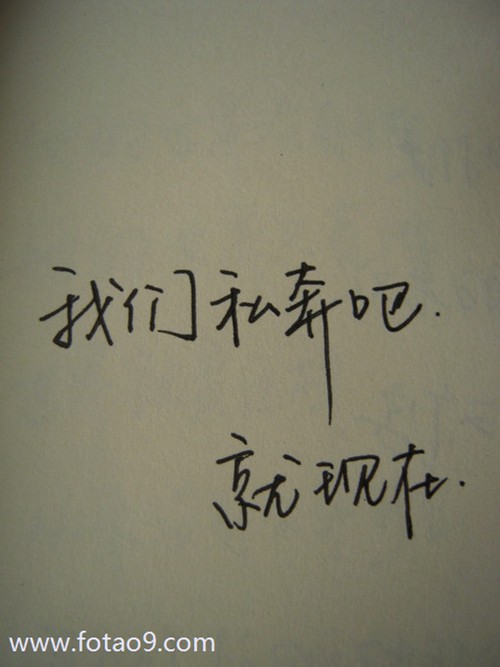 我们私奔吧.
就现在.
www.fotao9.com